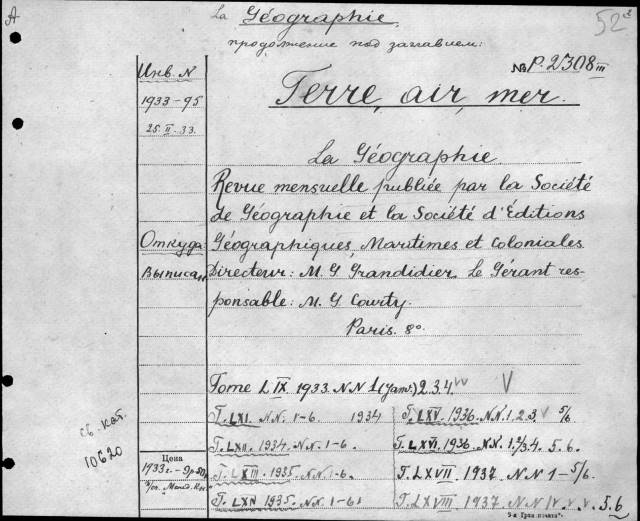 A
La Géographie.
52
продолжение под заглавием:
Инв. N
1933-95
25.II.33.
№ P.2308 III
Terre, air, mer.
La Géographie
Revue mensuelle publiée par la Société
de Géographie et la Société d'Éditions
Géographiques, Maritimes et Coloniales
Directeur: M. G. Grandidier. Le Gérant res-
ponsable: M. G. Courty.
Paris. 8°
Откуда
выписан
Tome LIX 1933. NN 1 (janv.) 2.3.4.
T. LXI. NN. 1-6. 1934
T. LXII. 1934. NN. 1-6.
T. LXIII. 1935. NN. 1-6.
T. LXIV. 1935. NN. 1-6.
T. LXV. 1936. NN. 1.2.3. 5/6
T. LXVI. 1936. NN. 1.2/3.4. 5.6.
T. LXVII. 1937. NN 1-5/6.
T. LXVIII. 1937. NN 5.6
св. кат.
10620
Цена
1933г.